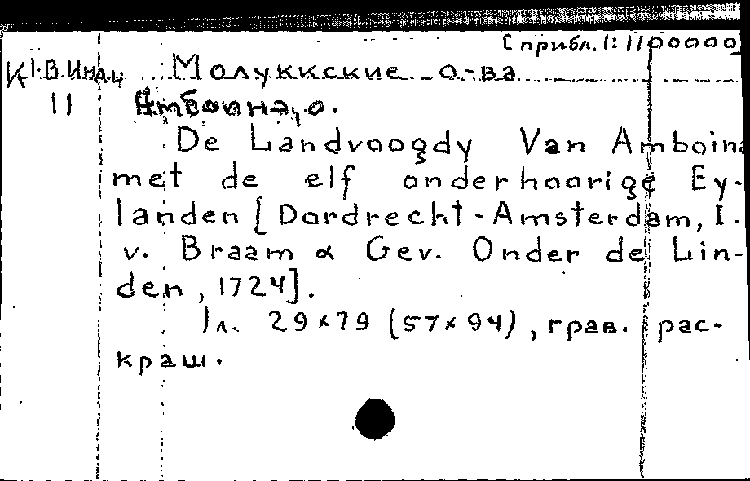 [прибл. 1:1100000]
К 1-В.Инд Молуккские о-ва
11 Амбоина, о.
De Landvoogdy Van Amboina
met de elf onderhoorige Ey-
landen [Dordrecht-Amsterdam, I.
v. Braam & Gev. Onder de Lin-
den, 1724].
1л. 29×79 (57×94), грав. рас-
краш.